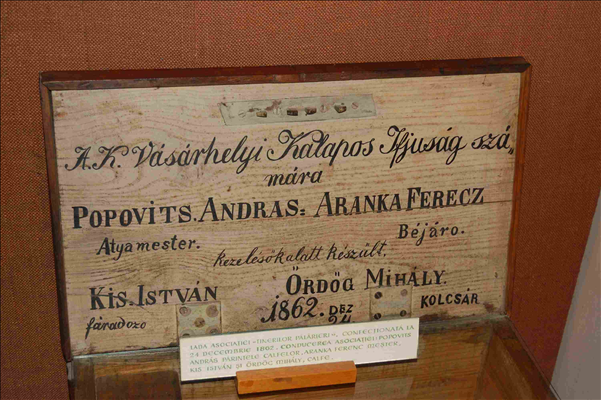 A.K. Vásárhelyi Kalapos Ifjuság szá„
mára
POPOVITS. ANDRAS= ARANKA FERECZ
Atyamester. Béjáro.
kezelésök alatt készült,
KIS. ISTVÁN ÖRDÖG MIHÁLY.
fáradozo 1862. DEZ 24 KOLCSÁR
TABA ASOCIAȚIEI "TINERILOR PĂLĂRIERI", CONFECȚIONATĂ LA
24 DECEMBRIE 1862. CONDUCEREA ASOCIAȚIEI: POPOVITS
ANDRÁS PĂRINTELE CALFELOR, ARANKA FERENC MESTER,
KIS ISTVÁN ȘI ÖRDÖG MIHÁLY, CALFE.